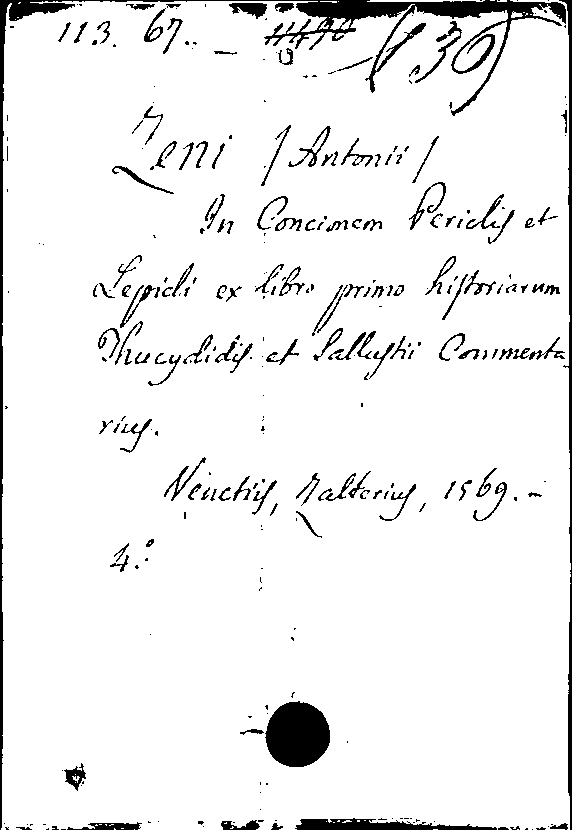 113. 67. –
(139)
Zeni /Antonii/
In Concionem Periclis et
Lepidi ex libro primo historiarum
Thucydidis et Sallustii Commenta-
rius.
Venetiis, Zalterius, 1569. –
4.°